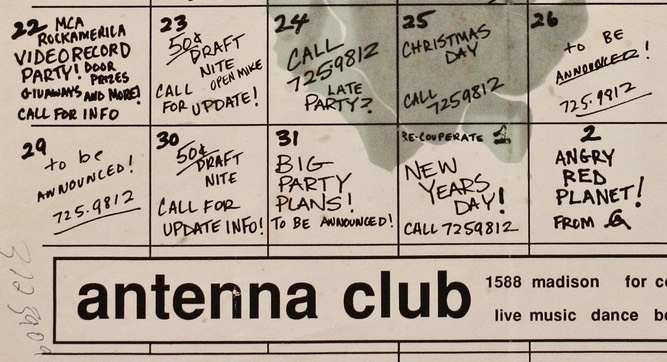 22 MCA
ROCKAMERICA
VIDEO RECORD
PARTY! DOOR
PRIZES
GIVAWAYS AND MORE!
CALL FOR INFO
23
50¢
DRAFT
NITE
OPEN MIKE
CALL
FOR UPDATE!
24
CALL
7259812
LATE
PARTY?
25
CHRISTMAS
DAY
CALL 7259812
26
to BE
ANNOUNCED!
725.9812
29
to be
ANNOUNCED!
725.9812
30
50¢
DRAFT
NITE
CALL FOR
UPDATE INFO!
31
BIG
PARTY
PLANS!
TO BE ANNOUNCED!
RE-COUPERATE 1
NEW
YEARS
DAY!
CALL 7259812
2
ANGRY
RED
PLANET!
FROM
antenna club
1588 madison for c
live music dance be